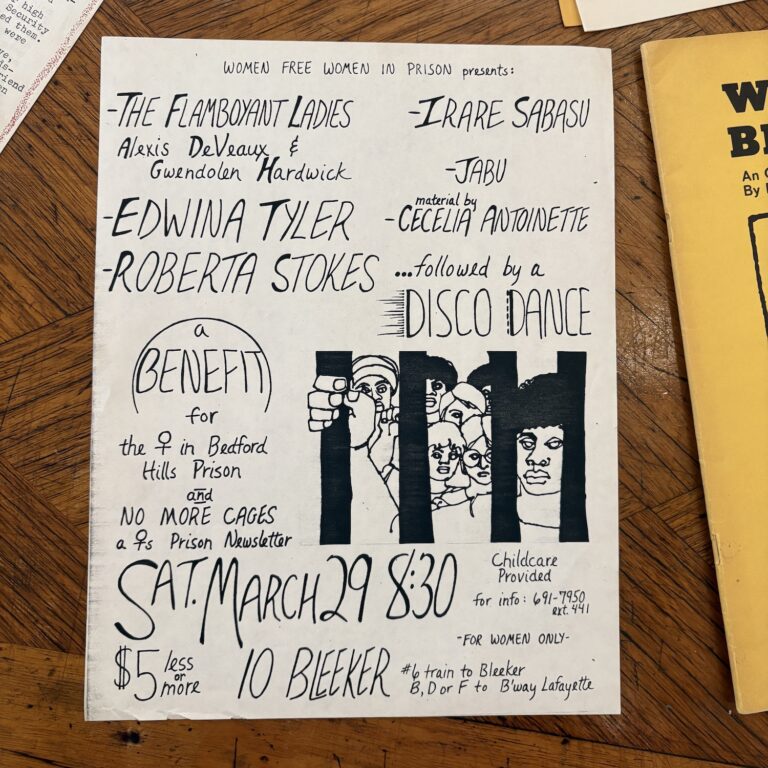 high
Security
ed them.
were
ve,
is-
riend
en
WOMEN FREE WOMEN IN PRISON presents:
-THE FLAMBOYANT LADIES
Alexis DeVeaux &
Gwendolen Hardwick
-EDWINA TYLER
-ROBERTA STOKES
-IRARE SABASU
-JABU
material by
-CECELIA ANTOINETTE
...followed by a
DISCO DANCE
a
BENEFIT
for
the ♀ in Bedford
Hills Prison
and
NO MORE CAGES
a ♀s Prison Newsletter
SAT. MARCH 29 8:30
Childcare
Provided
for info: 691-7950
ext. 441
-FOR WOMEN ONLY-
$5 less
or
more
10 BLEEKER
#6 train to Bleeker
B, D or F to B'way Lafayette
W
B
An
By